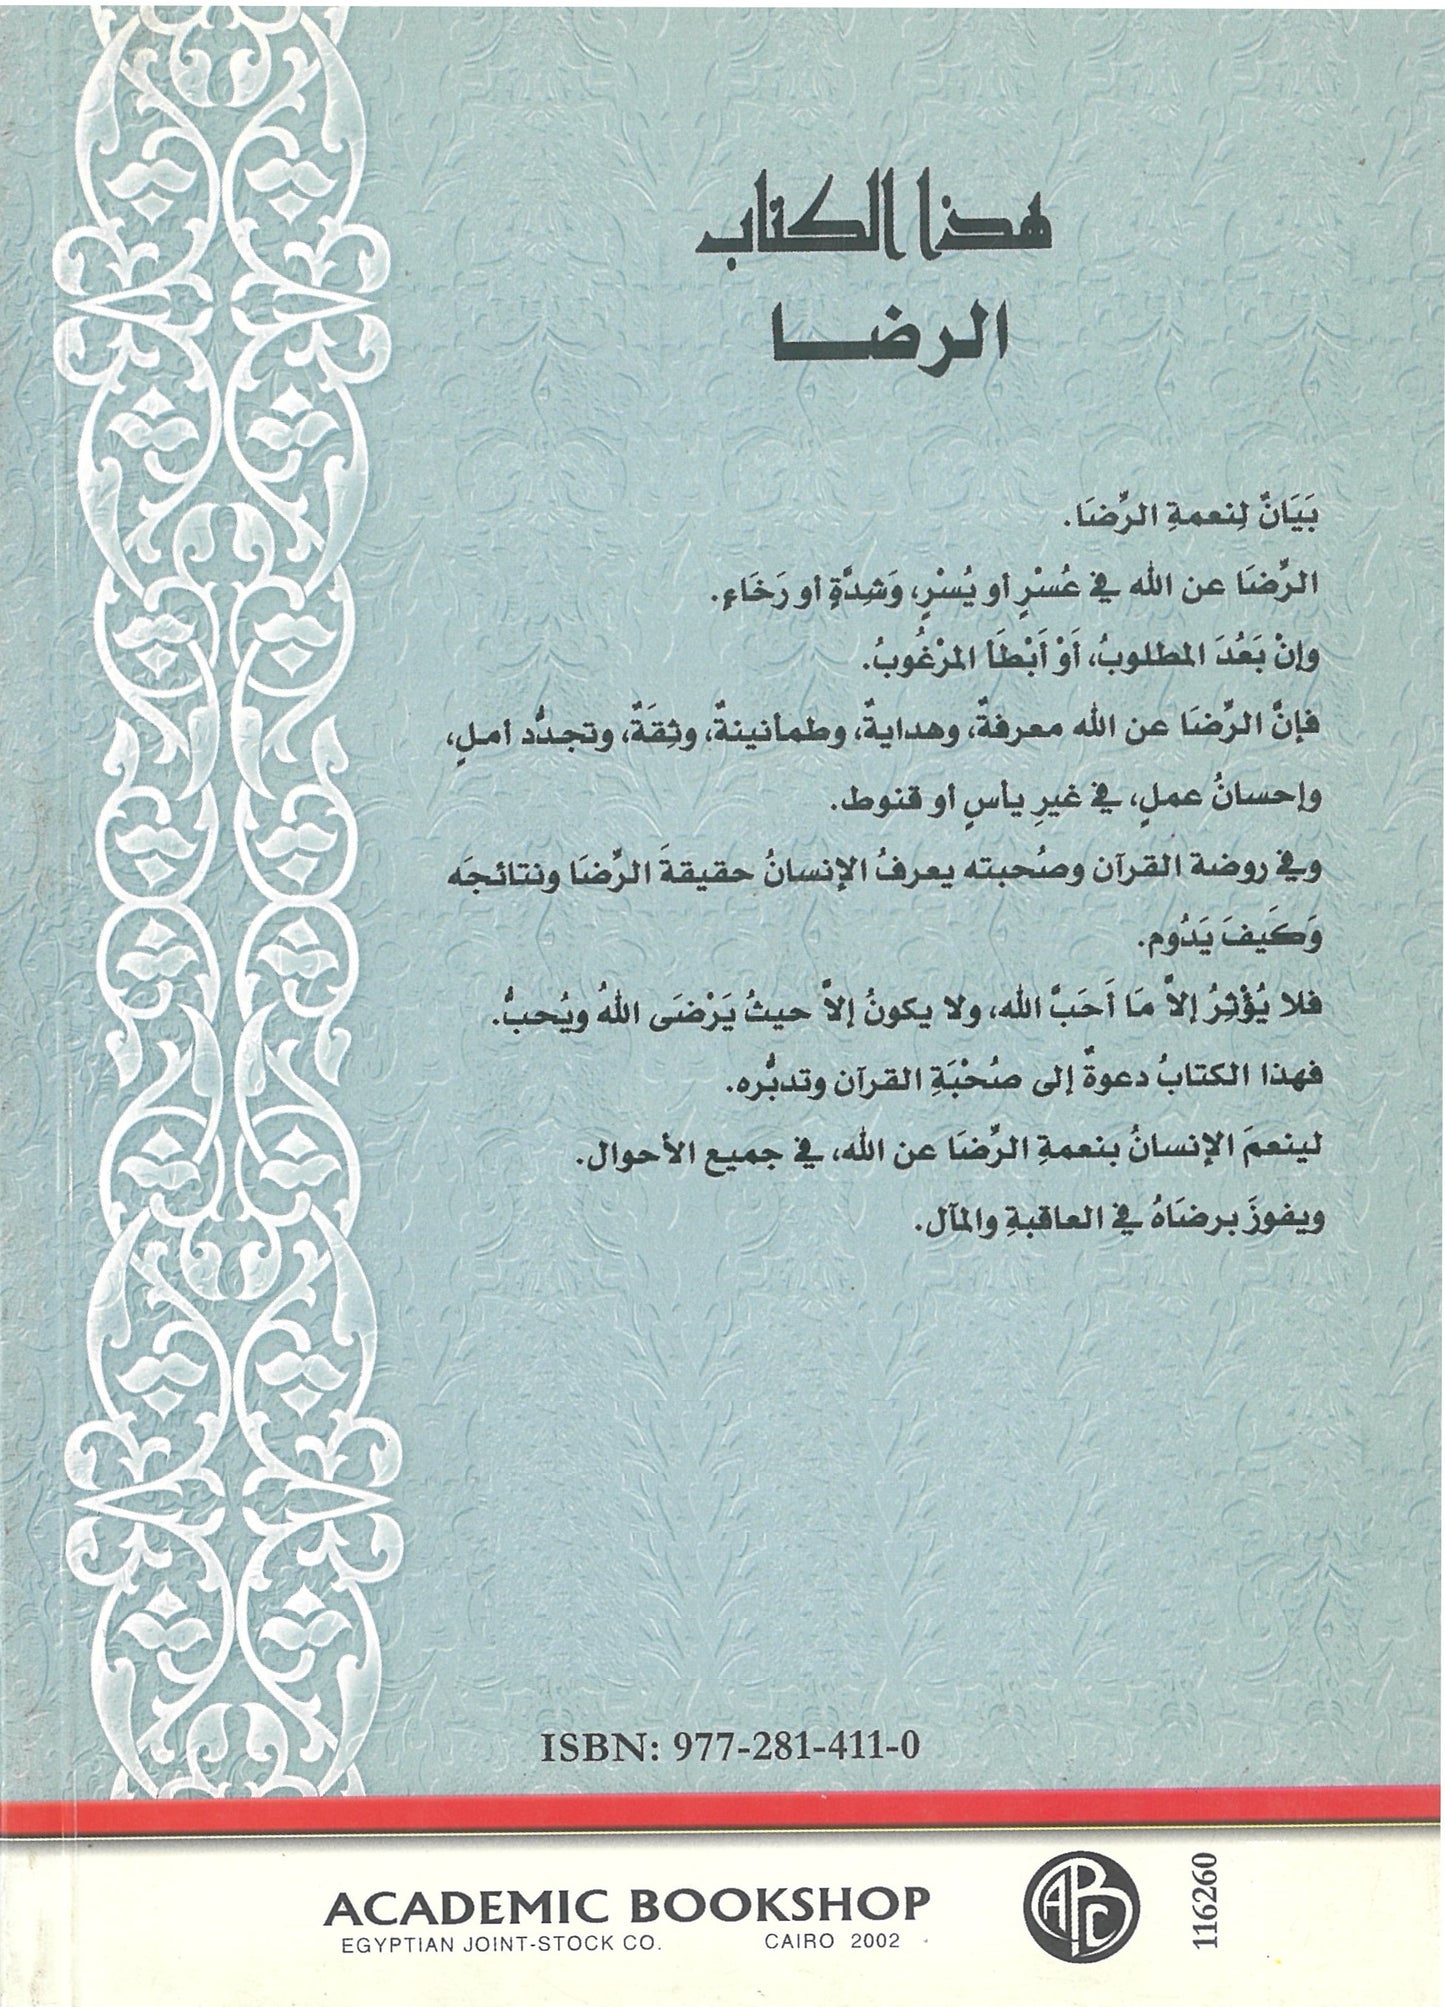 هذا الكتاب
الرضا
بَيَانٌ لِنعمةِ الرِّضَا.
الرِّضَا عن الله في عُسْرٍ أو يُسْرٍ، وَشِدَّةٍ أو رَخَاءٍ.
وإنْ بَعُدَ المطلوبُ، أَوْ أَبْطَأ المرْغُوبُ.
فإنَّ الرِّضَا عن الله معرفةٌ، وهدايةٌ، وطمأنينةٌ، وثِقَةٌ، وتجدُّد أملٍ،
وإحسانُ عملٍ، في غيرِ يأسٍ أو قنوط.
وفي روضة القرآن وصُحبته يعرفُ الإنسانُ حقيقةَ الرِّضَا ونتائجَه
وَكَيفَ يَدُوم.
فلا يُؤْثِرُ إلاَّ مَا أَحَبَّ الله، ولا يكونُ إلاَّ حيثُ يَرْضَى اللهُ ويُحبُّ.
فهذا الكتابُ دعوةٌ إلى صُحْبَةِ القرآن وتدبُّره.
لينعمَ الإنسانُ بنعمةِ الرِّضَا عن الله، في جميع الأحوال.
ويفوزَ برضَاهُ في العاقبةِ والمآل.
ISBN: 977-281-411-0
ACADEMIC BOOKSHOP
EGYPTIAN JOINT-STOCK CO. CAIRO 2002
ABC
116260